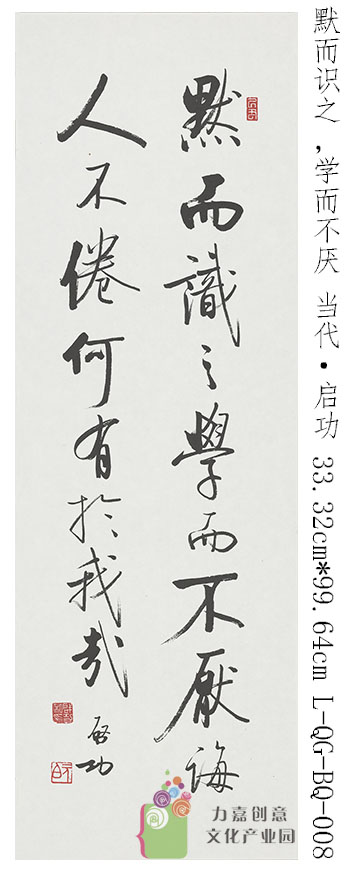 默而識之學而不厭誨
人不倦何有於我哉
启功
默而识之,学而不厌 当代·启功 33.32cm*99.64cm L-QG-BQ-008
力嘉创意
文化产业园